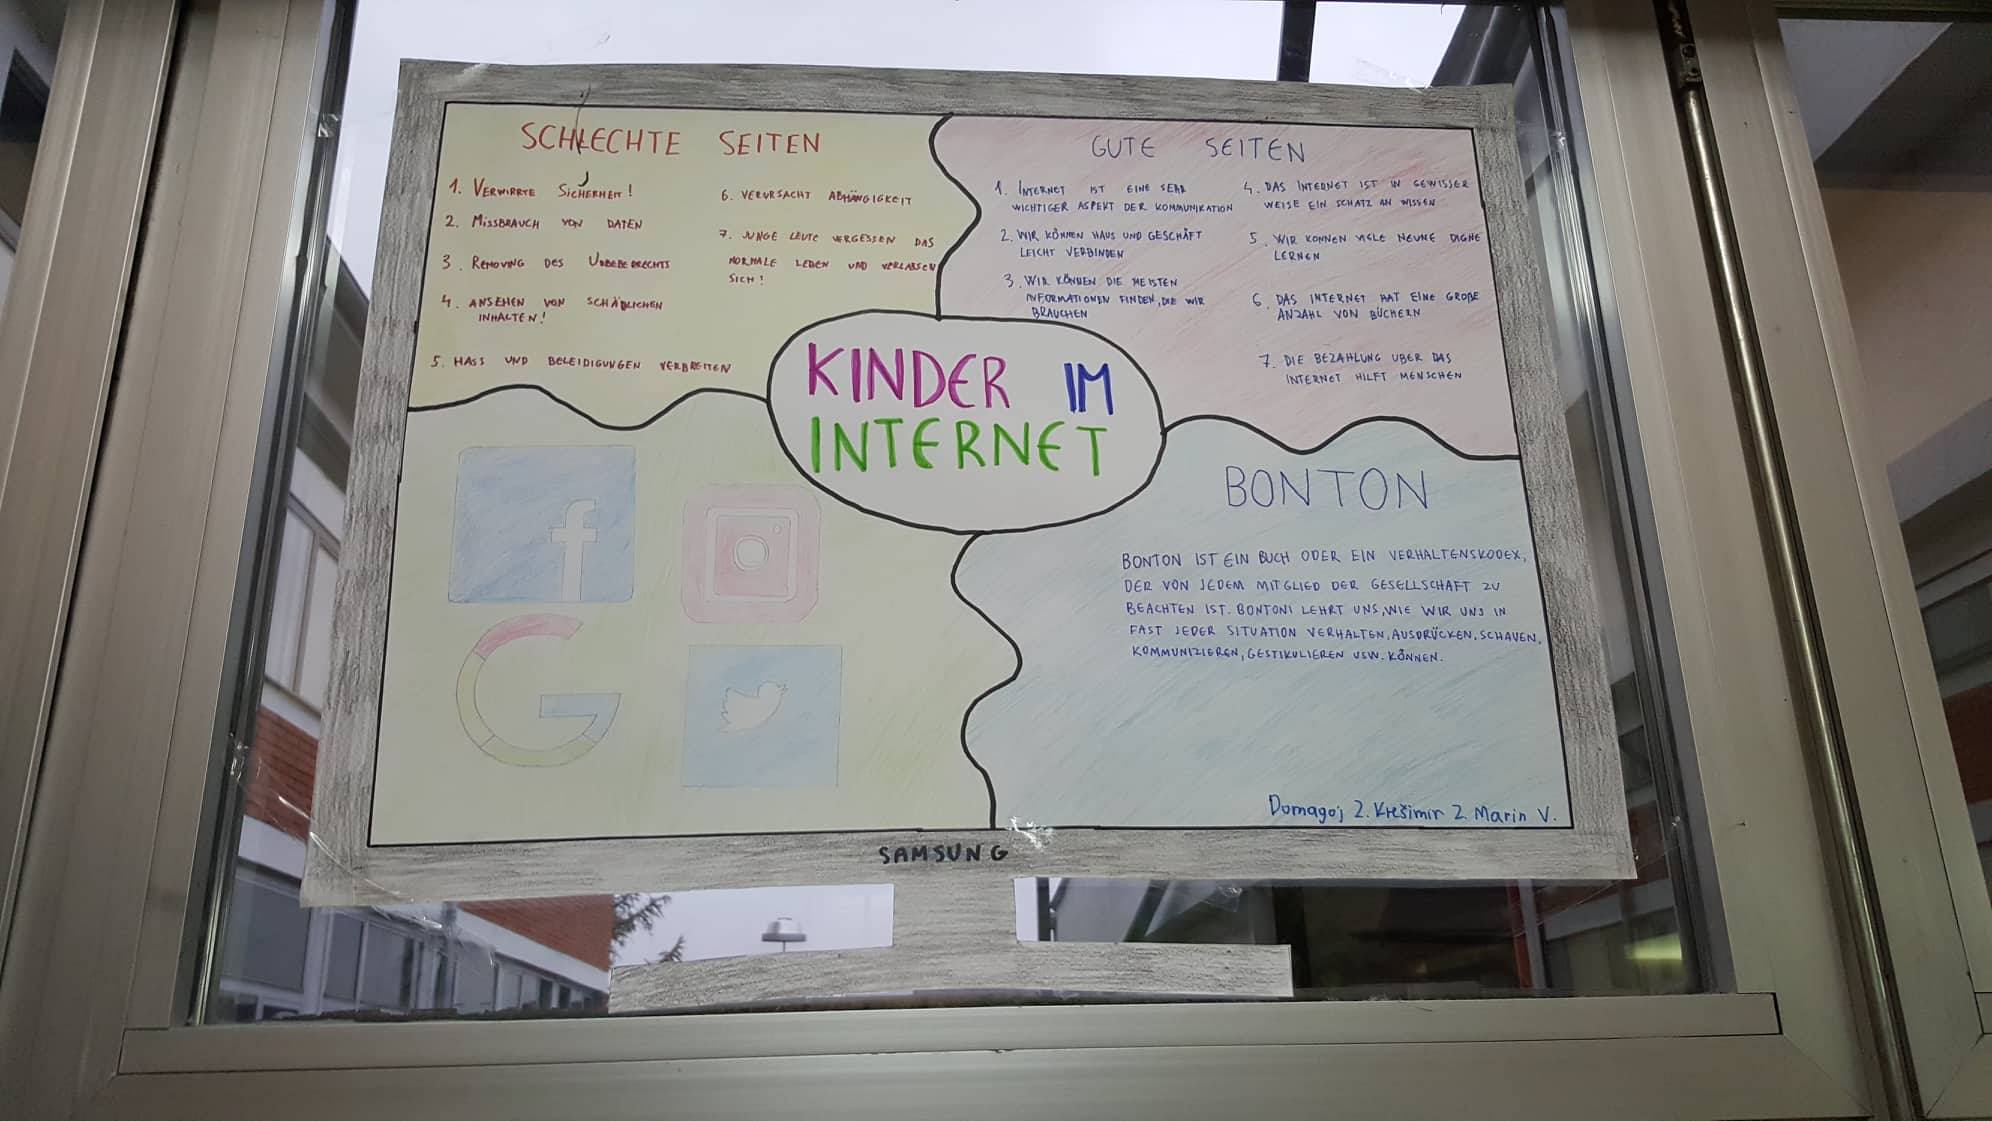 SCHLECHTE SEITEN
1. VERWIRRTE SICHERHEIT!
2. MISSBRAUCH VON DATEN
3. REMOVING DES
4. ANSEHEN VON SCHÄDLICHEN
INHALTEN!
5. HASS UND BELEIDIGUNGEN VERBREITEN
6. VERURSACHT ABHÄNGIGKEIT
7. JUNGE LEUTE VERGESSEN DAS
NORMALE LEBEN UND VERLASSEN
SICH!
GUTE SEITEN
1. INTERNET IST EINE SEHR
WICHTIGER ASPEKT DER KOMMUNIKATION
2. WIR KÖNNEN HAUS UND GESCHÄFT
LEICHT VERBINDEN
3. WIR KÖNNEN DIE MEISTEN
INFORMATIONEN FINDEN, DIE WIR
BRAUCHEN
4. DAS INTERNET IST IN GEWISSER
WEISE EIN SCHATZ AN WISSEN
5. WIR KONNEN VIELE NEUME DIGNE
LERNEN
6. DAS INTERNET HAT EINE GROßE
ANZAHL VON BÜCHERN
7. DIE BEZAHLUNG UBER DAS
INTERNET HILFT MENSCHEN
KINDER IM
INTERNET
f
G
BONTON
BONTON IST EIN BUCH ODER EIN VERHALTENSKODEX,
DER VON JEDEM MITGLIED DER GESELLSCHAFT ZU
BEACHTEN IST. BONTONI LEHRT UNS, WIE WIR UNS IN
FAST JEDER SITUATION VERHALTEN, AUSDRÜCKEN, SCHAUEN,
KOMMUNIZIEREN, GESTIKULIEREN USW. KÖNNEN.
Domagoj Z. Krešimir Z. Marin V.
SAMSUNG